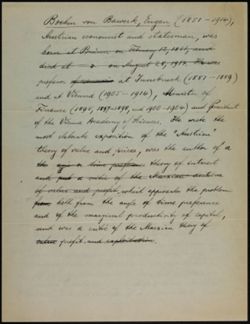 Boehm von Bawerk, Eugen (1851-1914),
Austrian economist and statesman, was
born at Brünn on February 12, 1851, and
died at on August 28, 1914. He was
professor at Innsbruck (1881-1889)
and at Vienna (1905-1914), Minister of
Finance (1895, 1897-1898, and 1900-1904) and President
of the Vienna Academy of Sciences. He wrote the
most elaborate exposition of the "Austrian"
theory of value and prices, was the author of a
theory of interest
and
of value and profit, which approaches the problem
both from the angle of time preference
and of the marginal productivity of capital,
and was a critic of the Marxian theory of
value profit and exploitation.